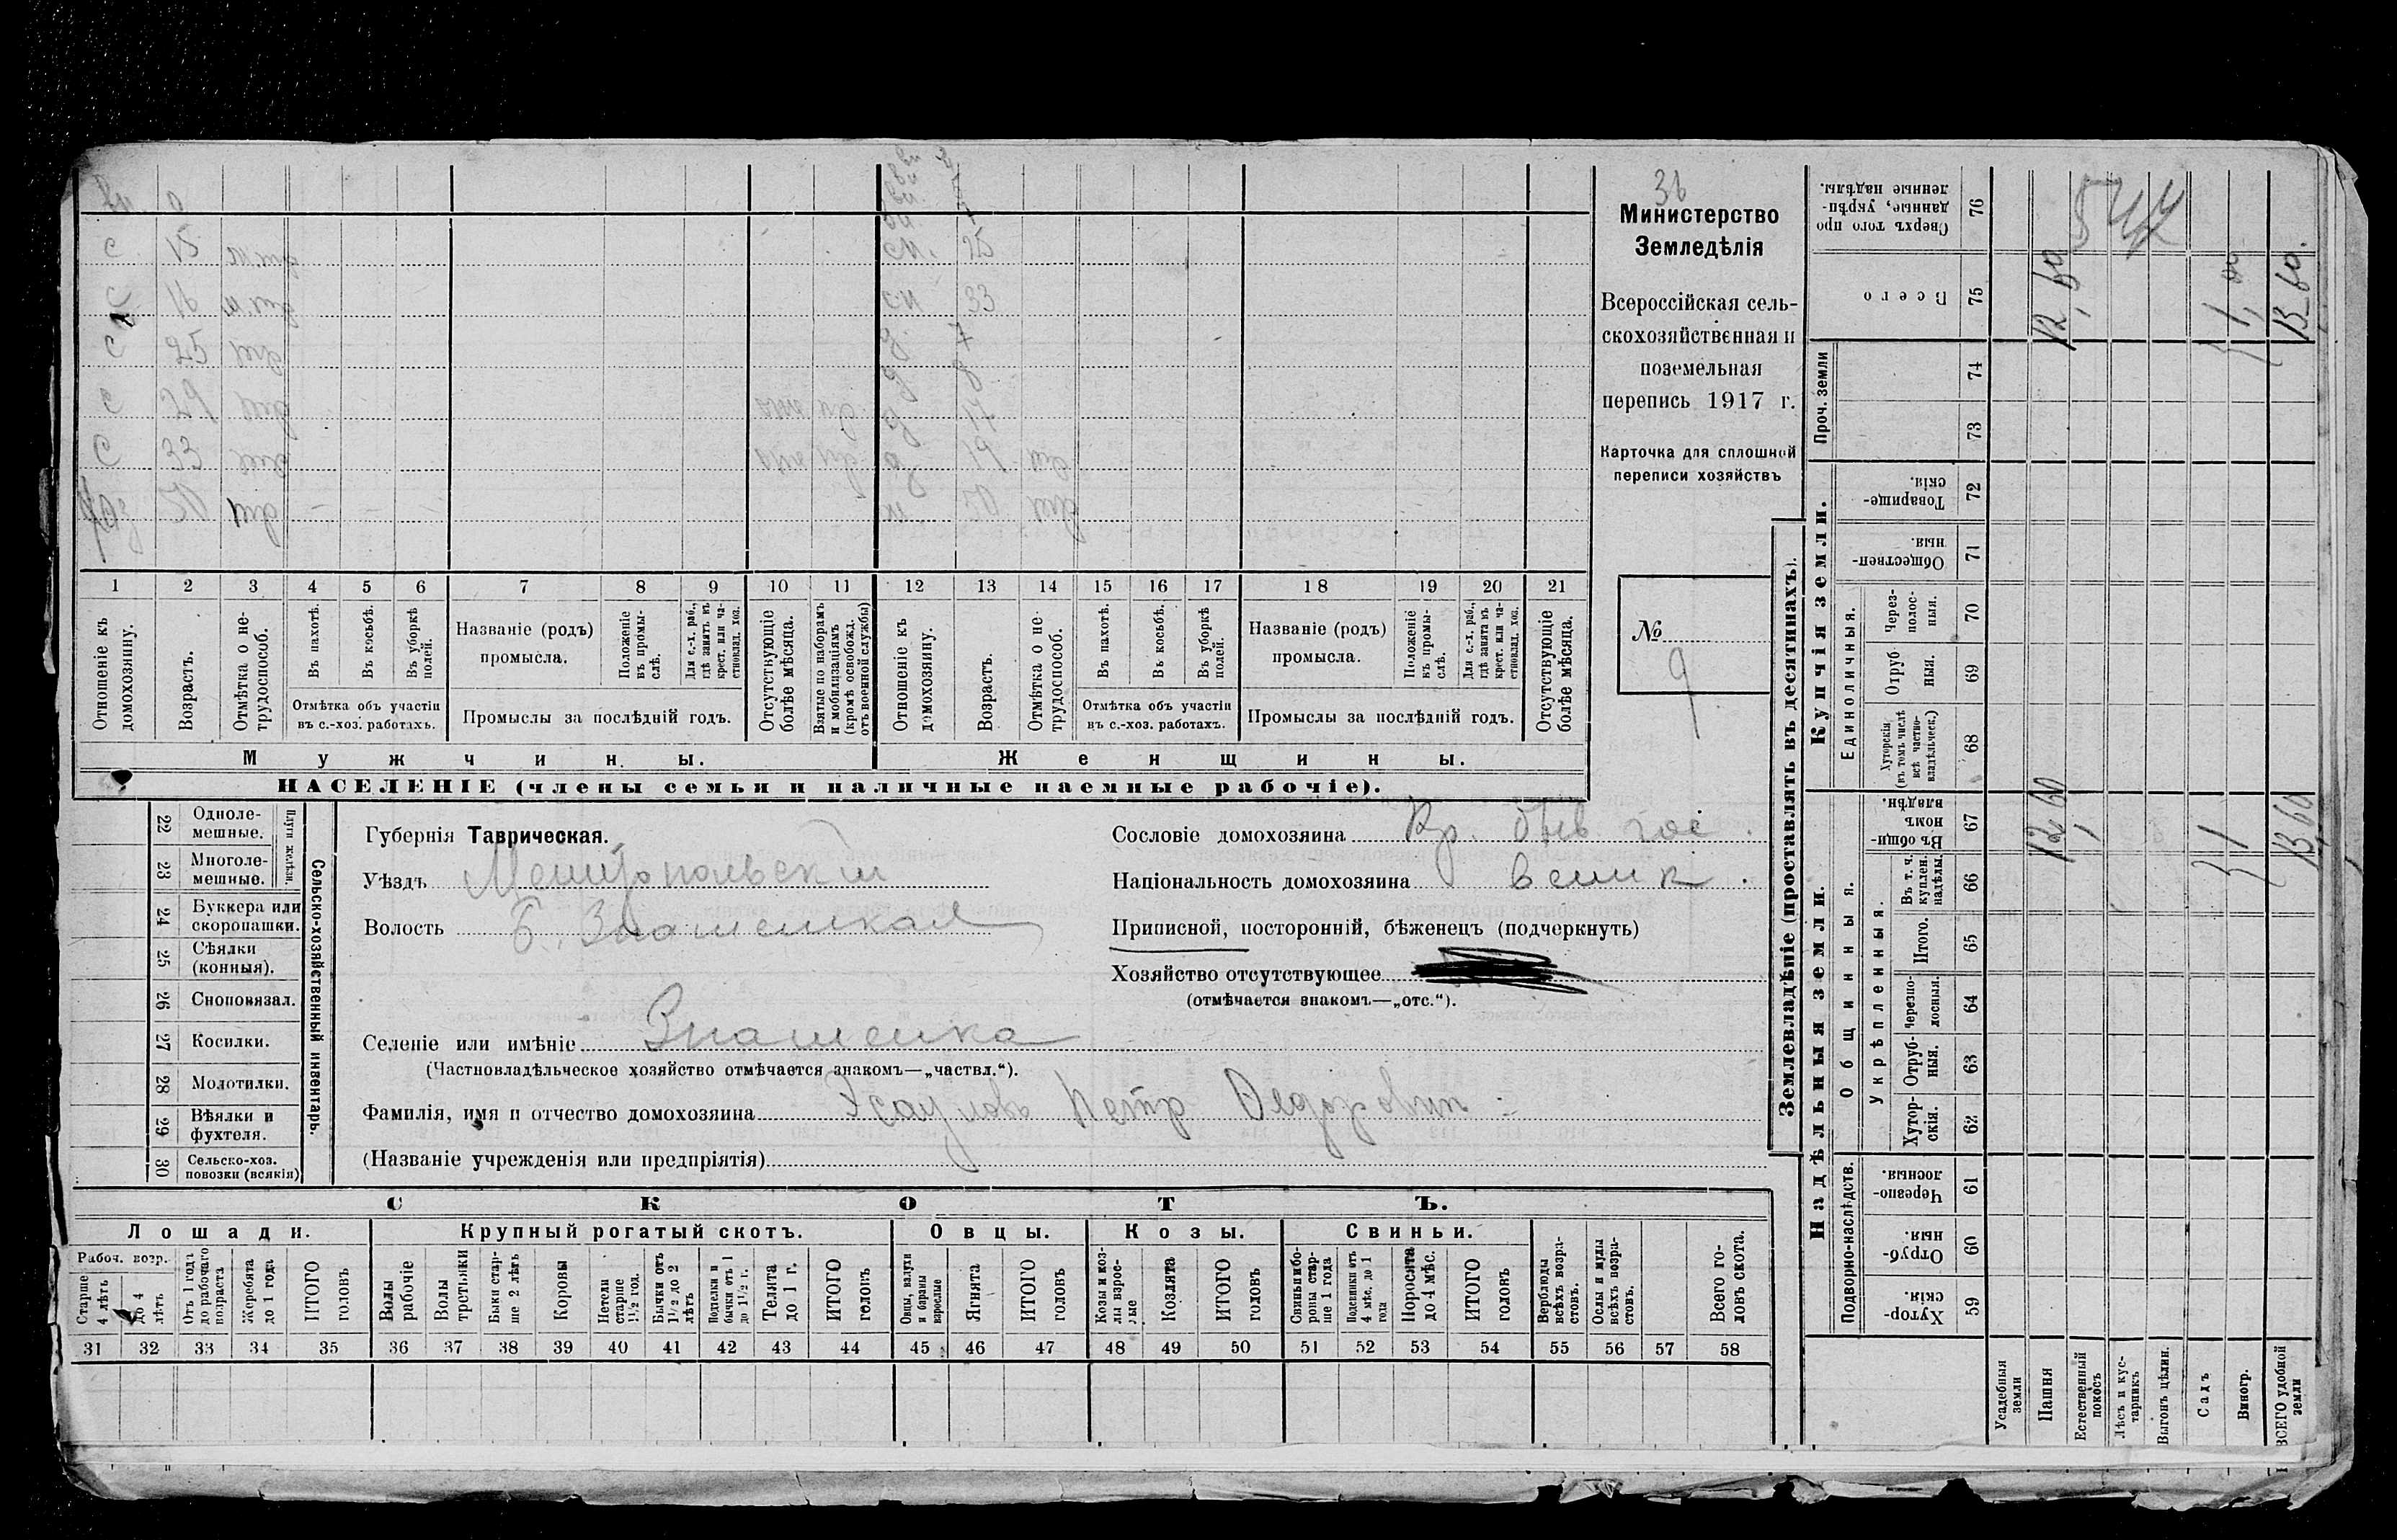 36
Министерство
Земледѣлія
Всероссійская сель-
скохозяйственная и
поземельная
перепись 1917 г.
Карточка для сплошной
переписи хозяйствъ
№
9
с 15 см. 25
с 16 см 33
с 25 д 7
с 29 д 8
с 33 д 17
50 д 19
ж 50
1 2 3 4 5 6 7 8 9 10 11 12 13 14 15 16 17 18 19 20 21
Отношеніе къ домохозяину.
Возрастъ.
Отмѣтка о не-трудоспособ.
Въ пахотѣ.
Въ косьбѣ.
Въ уборкѣ полей.
Отмѣтка объ участіи
въ с.-хоз. работахъ.
Названіе (родъ)
промысла.
Положеніе въ промы-слѣ.
Для с.-х. раб., гдѣ занятъ въ крест. или ча-стновлад. хоз.
Промыслы за послѣдній годъ.
Отсутствующіе болѣе мѣсяца.
Взятые по наборамъ и мобилизаціямъ (кромѣ освобожд. отъ военной службы)
Отношеніе къ домохозяину.
Возрастъ.
Отмѣтка о не-трудоспособ.
Въ пахотѣ.
Въ косьбѣ.
Въ уборкѣ полей.
Отмѣтка объ участіи
въ с.-хоз. работахъ.
Названіе (родъ)
промысла.
Положеніе въ промы-слѣ.
Для с.-х. раб., гдѣ занята въ крест. или ча-стновлад. хоз.
Промыслы за послѣдній годъ.
Отсутствующіе болѣе мѣсяца.
Мужчины.
Женщины.
НАСЕЛЕНІЕ (члены семьи и наличные наемные рабочіе).
Сельско-хозяйственный инвентарь.
Плуги желѣзн.
22 Одноле-мешные.
23 Многоле-мешные.
24 Буккера или скоропашки.
25 Сѣялки (конныя).
26 Сноповязал.
27 Косилки.
28 Молотилки.
29 Вѣялки и фухтеля.
30 Сельско-хоз. повозки (всякія)
Губернія Таврическая.
Уѣздъ Мелитопольскій
Волость Б. Знаменская
Селеніе или имѣніе Знаменка
(Частновладѣльческое хозяйство отмѣчается знакомъ—„частвл.“).
Фамилія, имя и отчество домохозяина Петр Федорович
(Названіе учрежденія или предпріятія)
Сословіе домохозяина Кр. быв. гос.
Національность домохозяина велик.
Приписной, посторонній, бѣженецъ (подчеркнуть)
Хозяйство отсутствующее
(отмѣчается знакомъ—„отс.“).
СКОТЪ.
Лошади. Крупный рогатый скотъ. Овцы. Козы. Свиньи.
Рабоч. возр.
Старше 4 лѣтъ
до 4 лѣтъ
Отъ 1 года до рабочаго возраста
Жеребята до 1 года
ИТОГО головъ
Волы рабочіе
Волы третьяки
Быки стар-ше 2 лѣтъ
Коровы
Нетели старше 1½ год.
Бычки отъ 1½ до 2 лѣтъ
Подтелки и бычки отъ 1 до 1½ г.
Телята до 1 г.
ИТОГО головъ
Овцы, валухи и бараны взрослые
Ягнята
ИТОГО головъ
Козы и коз-лы взрос-лые
Козлята
ИТОГО головъ
Свиньи и бо-ровы стар-ше 1 года
Подсвинки отъ 4 мѣс. до 1 года
Поросята до 4 мѣс.
ИТОГО головъ
Верблюды всѣхъ возра-стовъ.
Ослы и мулы всѣхъ возра-стовъ.
Всего го-ловъ скота.
31 32 33 34 35 36 37 38 39 40 41 42 43 44 45 46 47 48 49 50 51 52 53 54 55 56 57 58
Землевладѣніе (проставлять въ десятинахъ).
Надѣльныя земли.
Купчія земли.
Проч. земли
Подворно-наслѣдств.
Общинныя.
Укрѣпленныя.
Единоличныя.
Сверхъ того про-данные, укрѣп-ленные надѣлы. 76
Всего 75
74
73
Товарище-скія. 72
Обществен-ныя. 71
Через-полос-ныя. 70
Отруб-ныя. 69
Хуторскія (въ томъ числѣ всѣ частно-владѣльческ.) 68
Въ общин-номъ владѣн. 67
Въ т. ч. куплен. надѣлы. 66
Итого. 65
Черезпо-лосныя. 64
Отруб-ныя. 63
Хутор-скія. 62
Черезпо-лосныя. 61
Отруб-ныя. 60
Хутор-скія. 59
Усадебныя земли
Пашня
Естественный покосъ
Лѣсъ и кус-тарникъ
Выгонъ цѣлин.
Садъ
Виногр.
ВСЕГО удобной земли
12,60
13,60
12,60
1
13,60